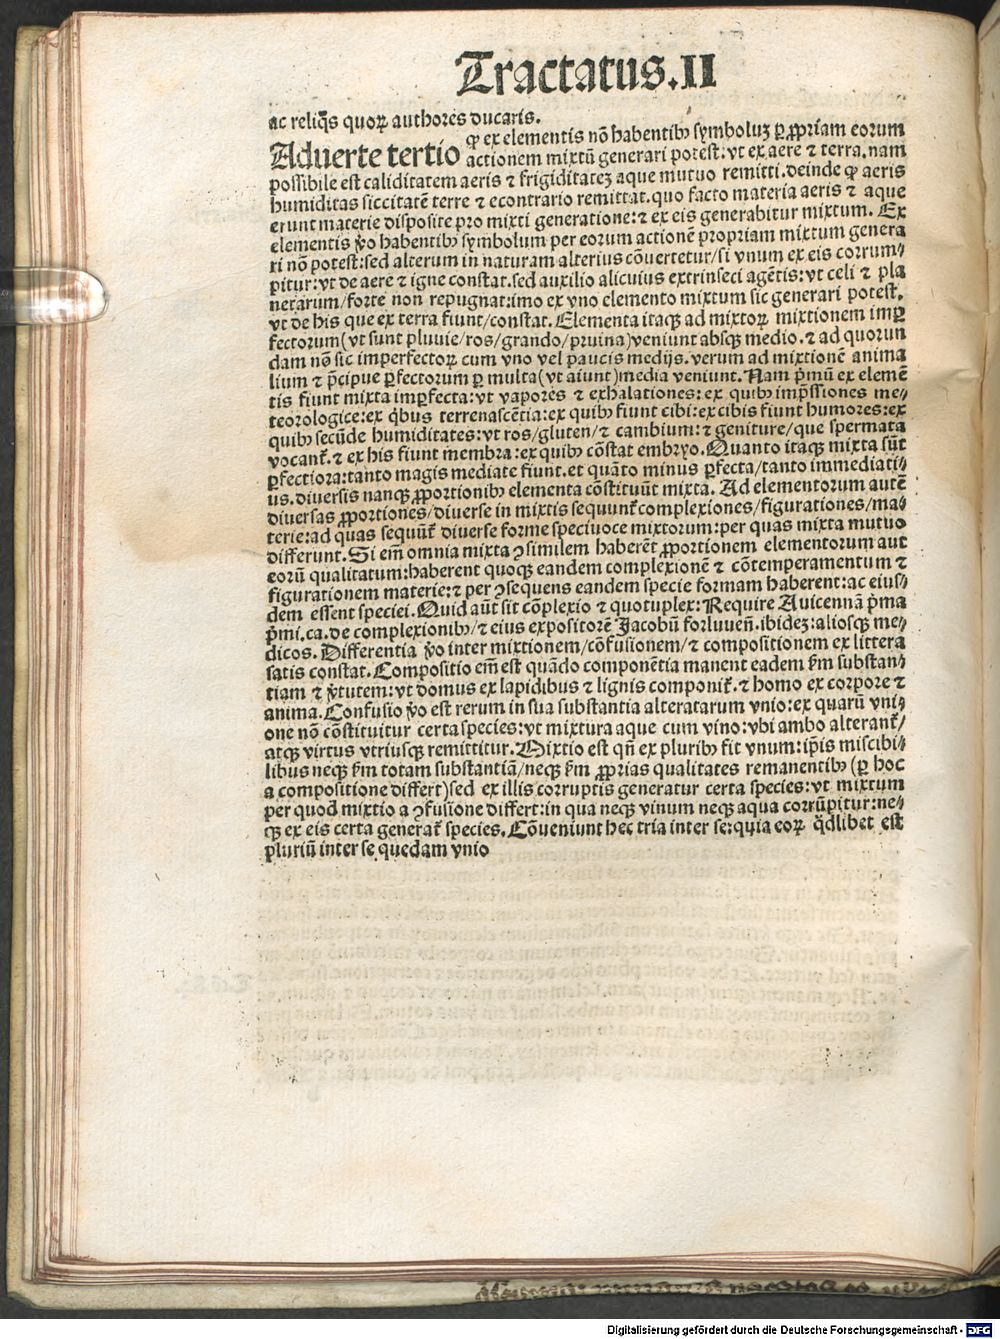 Tractatus.II
ac reliqͦs quoꝝ authores ducaris.
Aduerte tertio ꝙ ex elementis nō habentibꝰ symboluꝫ ꝑ ꝓpriam eorum
actionem mixtū generari potest: vt ex aere ⁊ terra. nam
possibile est caliditatem aeris ⁊ frigiditateꝫ aque mutuo remitti. deinde ꝙ aeris
humiditas siccitatē terre ⁊ econtrario remittat. quo facto materia aeris ⁊ aque
erunt materie disposite pro mixti generatione: ⁊ ex eis generabitur mixtum. Ex
elementis ꝟo habentibꝰ symbolum per eorum actionē propriam mixtum genera
ri nō potest: sed alterum in naturam alterius cōuertetur/si vnum ex eis corrum⸗
pitur: vt de aere ⁊ igne constat. sed auxilio alicuius extrinseci agētis: vt celi ⁊ pla
netarum/forte non repugnat: imo ex vno elemento mixtum sic generari potest.
vt de his que ex terra fiunt/constat. Elementa itaqꝫ ad mixtoꝝ mixtionem imꝑ
fectorum(vt sunt pluuie/ros/grando/pruina)veniunt absqꝫ medio. ⁊ ad quorun
dam nō sic imperfectoꝝ cum vno vel paucis medijs. verum ad mixtionē anima
lium ⁊ p̄cipue ꝑfectorum ꝑ multa(vt aiunt)media veniunt. Nam pͥmū ex elemē
tis fiunt mixta imꝑfecta: vt vapores ⁊ exhalationes: ex quibꝰ imp̄ssiones me⸗
teorologice: ex qͥbus terrenascētia: ex quibꝰ fiunt cibi: ex cibis fiunt humores: ex
quibꝰ secūde humiditates: vt ros/gluten/⁊ cambium: ⁊ geniture/que spermata
vocant᷑. ⁊ ex his fiunt membra: ex quibꝰ cōstat embryo. Quanto itaqꝫ mixta sūt
ꝑfectiora: tanto magis mediate fiunt. et quāto minus ꝑfecta/tanto immediati⸗
us. diuersis nanqꝫ ꝓportionibꝰ elementa cōstituūt mixta. Ad elementorum autē
diuersas ꝓportiones/diuerse in mixtis sequunt᷑ complexiones/figurationes/ma⸗
terie: ad quas sequūt᷑ diuerse forme speciuoce mixtorum: per quas mixta mutuo
differunt. Si em̄ omnia mixta ꝯsimilem haberēt ꝓportionem elementorum aut
eorū qualitatum: haberent quoqꝫ eandem complexionē ⁊ cōtemperamentum ⁊
figurationem materie: ⁊ per ꝯsequens eandem specie formam haberent: ac eius⸗
dem essent speciei. Quid aūt sit cōplexio ⁊ quotuplex: Require Auicennā pͥma
pͥmi. ca. de complexionibꝰ/⁊ eius expositorē Jacobū forluueñ. ibideꝫ: aliosqꝫ me⸗
dicos. Differentia ꝟo inter mixtionem/cōfusionem/⁊ compositionem ex littera
satis constat. Compositio em̄ est quādo componētia manent eadem ẜm substan⸗
tiam ⁊ ꝟtutem: vt domus ex lapidibus ⁊ lignis componit᷑. ⁊ homo ex corpore ⁊
anima. Confusio ꝟo est rerum in sua substantia alteratarum vnio: ex quarū vni⸗
one nō cōstituitur certa species: vt mixtura aque cum vino: vbi ambo alterant᷑/
atqꝫ virtus vtriusqꝫ remittitur. Mixtio est qn̄ ex pluribꝰ fit vnum: ip̄is miscibi⸗
libus neqꝫ ẜm totam substantiā/neqꝫ ẜm ꝓprias qualitates remanentibꝰ (ꝑ hoc
a compositione differt)sed ex illis corruptis generatur certa species: vt mixtum
per quod mixtio a ꝯfusione differt: in qua neqꝫ vinum neqꝫ aqua corrūpitur: ne⸗
qꝫ ex eis certa generat᷑ species. Cōueniunt hec tria inter se: quia eoꝝ qͦdlibet est
pluriū inter se quedam vnio
Digitalisierung gefördert durch die Deutsche Forschungsgemeinschaft - DFG